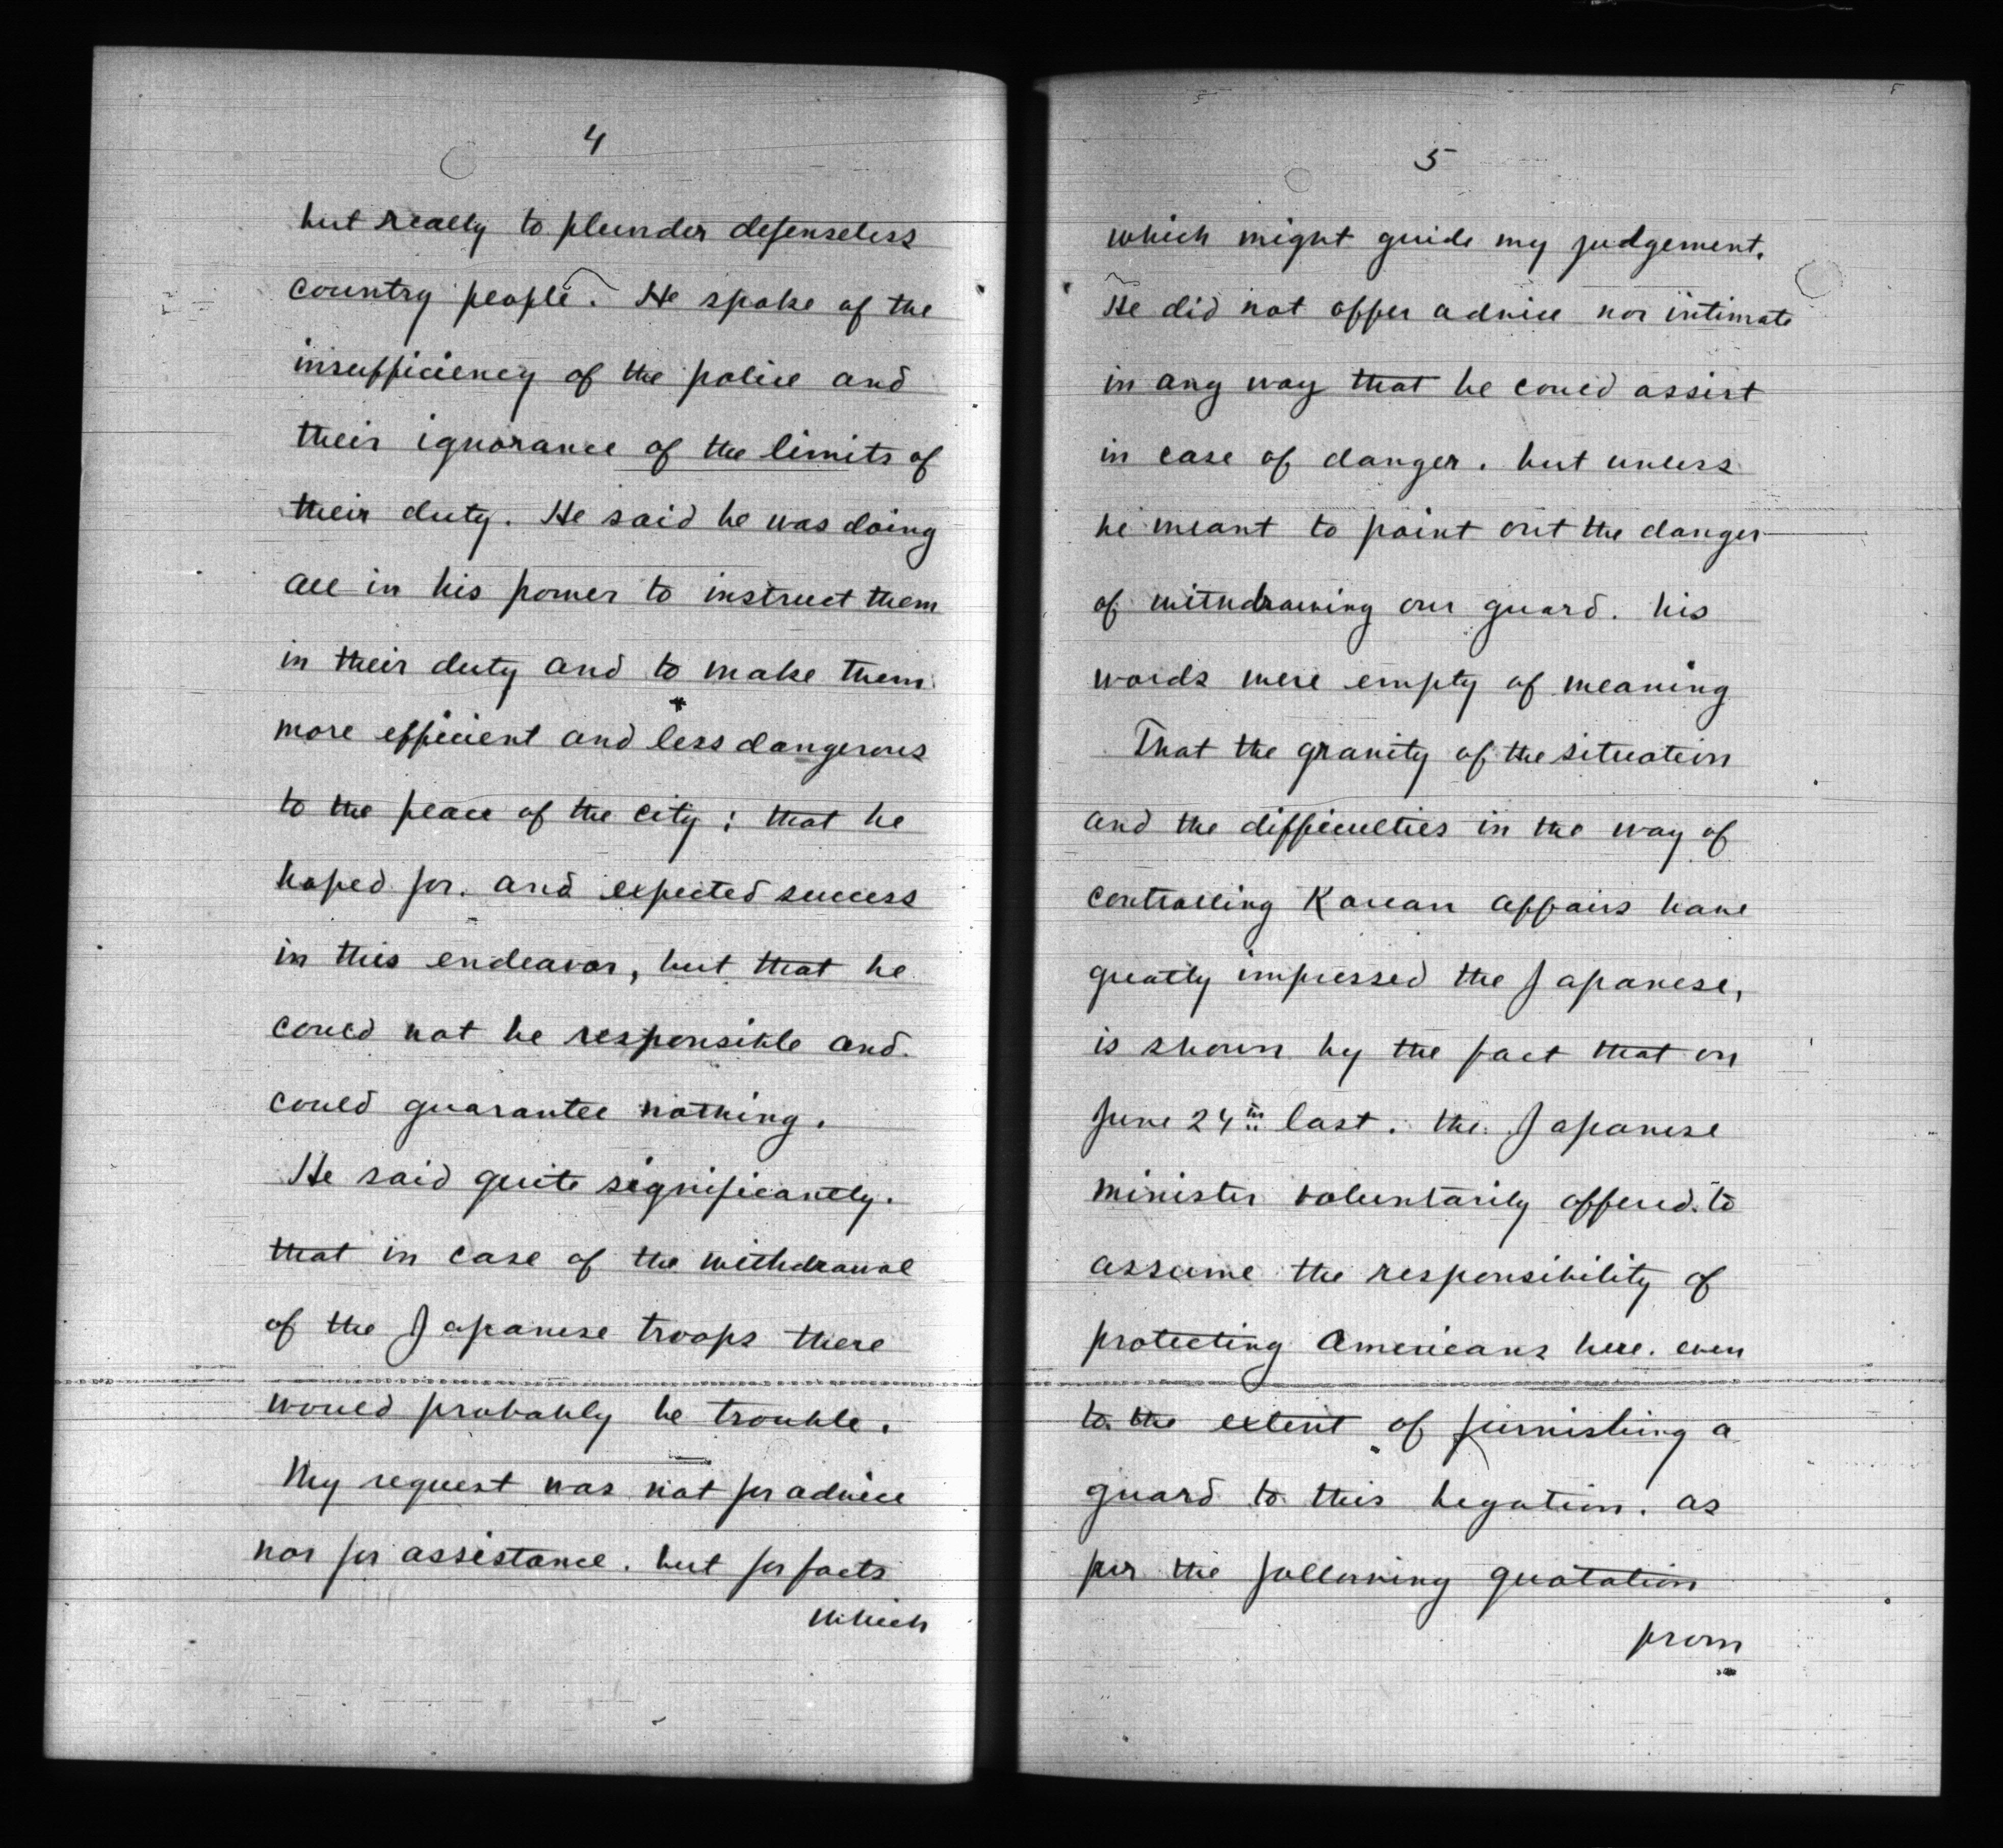 4
but really to plunder defenseless
country people. He spoke of the
insufficiency of the police and
their ignorance of the limits of
their duty. He said he was doing
all in his power to instruct them
in their duty and to make them
more efficient and less dangerous
to the peace of the city; that he
hoped for, and expected success
in this endeavor, but that he
could not be responsible and
could guarantee nothing.
He said quite significantly,
that in case of the withdrawal
of the Japanese troops there
would probably be trouble.
My request was not for advice
nor for assistance, but for facts
which
5
which might guide my judgement.
He did not offer advice nor intimate
in any way that he could assist
in case of danger, but unless
he meant to point out the danger
of withdrawing our guard, his
words were empty of meaning
That the gravity of the situation
and the difficulties in the way of
controlling Korean affairs have
greatly impressed the Japanese,
is shown by the fact that on
June 24th last, the Japanese
minister voluntarily offered to
assume the responsibility of
protecting Americans here, even
to the extent of furnishing a
guard to this Legation, as
per the following quotation
from